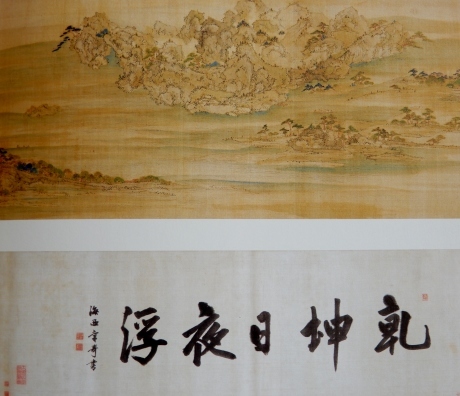 乾坤日夜浮
海西書